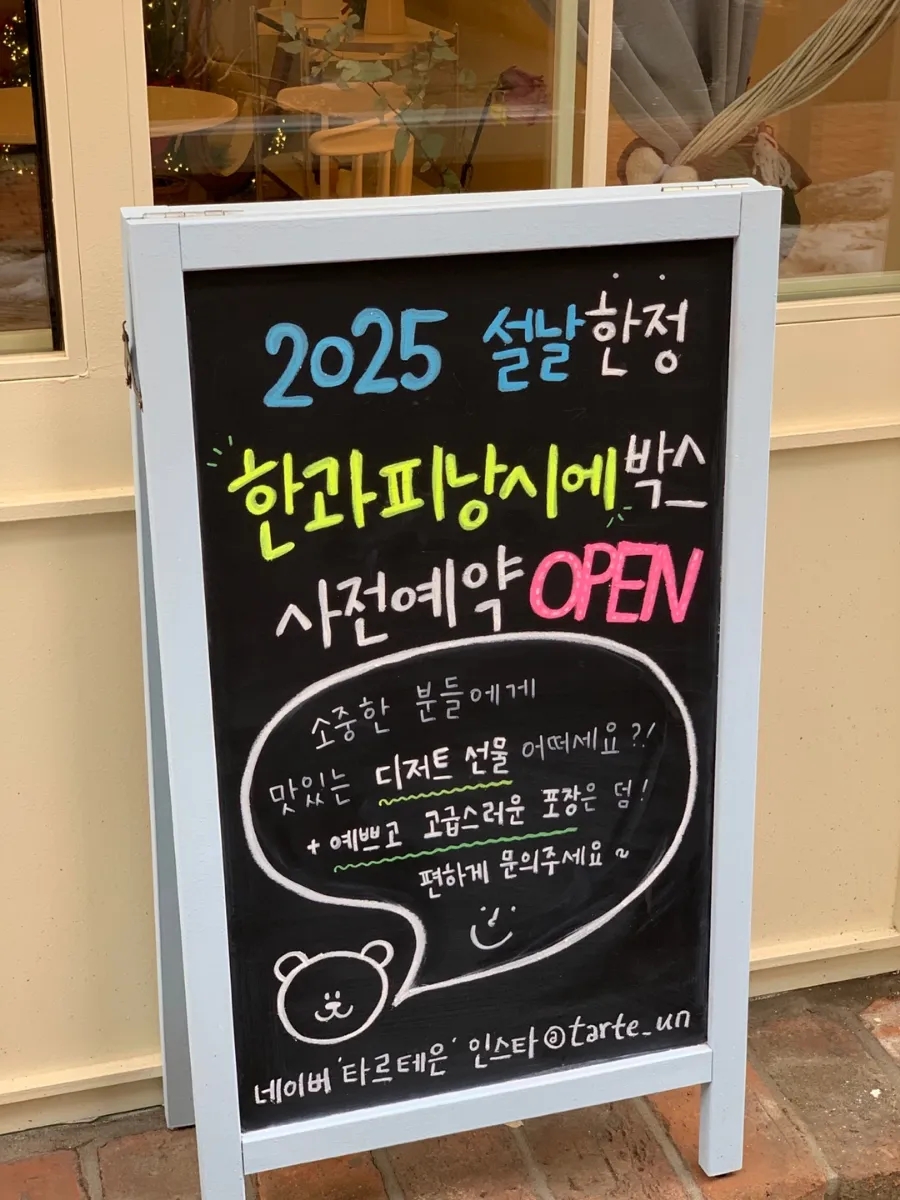 2025 설날한정
한과피낭시에박스
사전예약 OPEN
소중한 분들에게
맛있는 디저트 선물 어떠세요?!
+ 예쁘고 고급스러운 포장은 덤!
편하게 문의주세요~
네이버 '타르테은' 인스타 @tarte_un